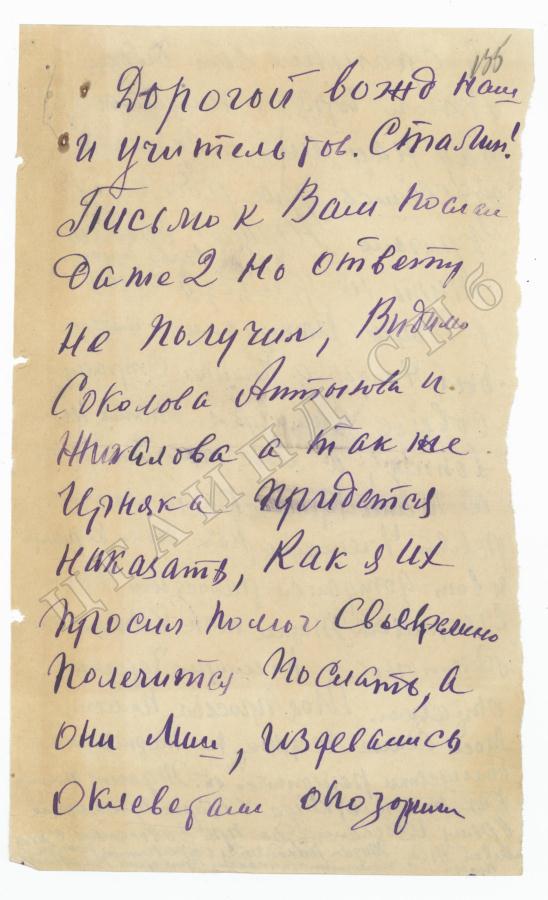 135
Дорогой вожд наш
и учитель тов. Сталин!
Письмо к Вам послал
даже 2 но ответу
не получил, Видимо
Соколова Антынова и
а так же
придется
наказать, как я их
просил помоч
полечится послать, а
они лиш, издевались
оклеветали опозорили
ЦГАИПД СПб